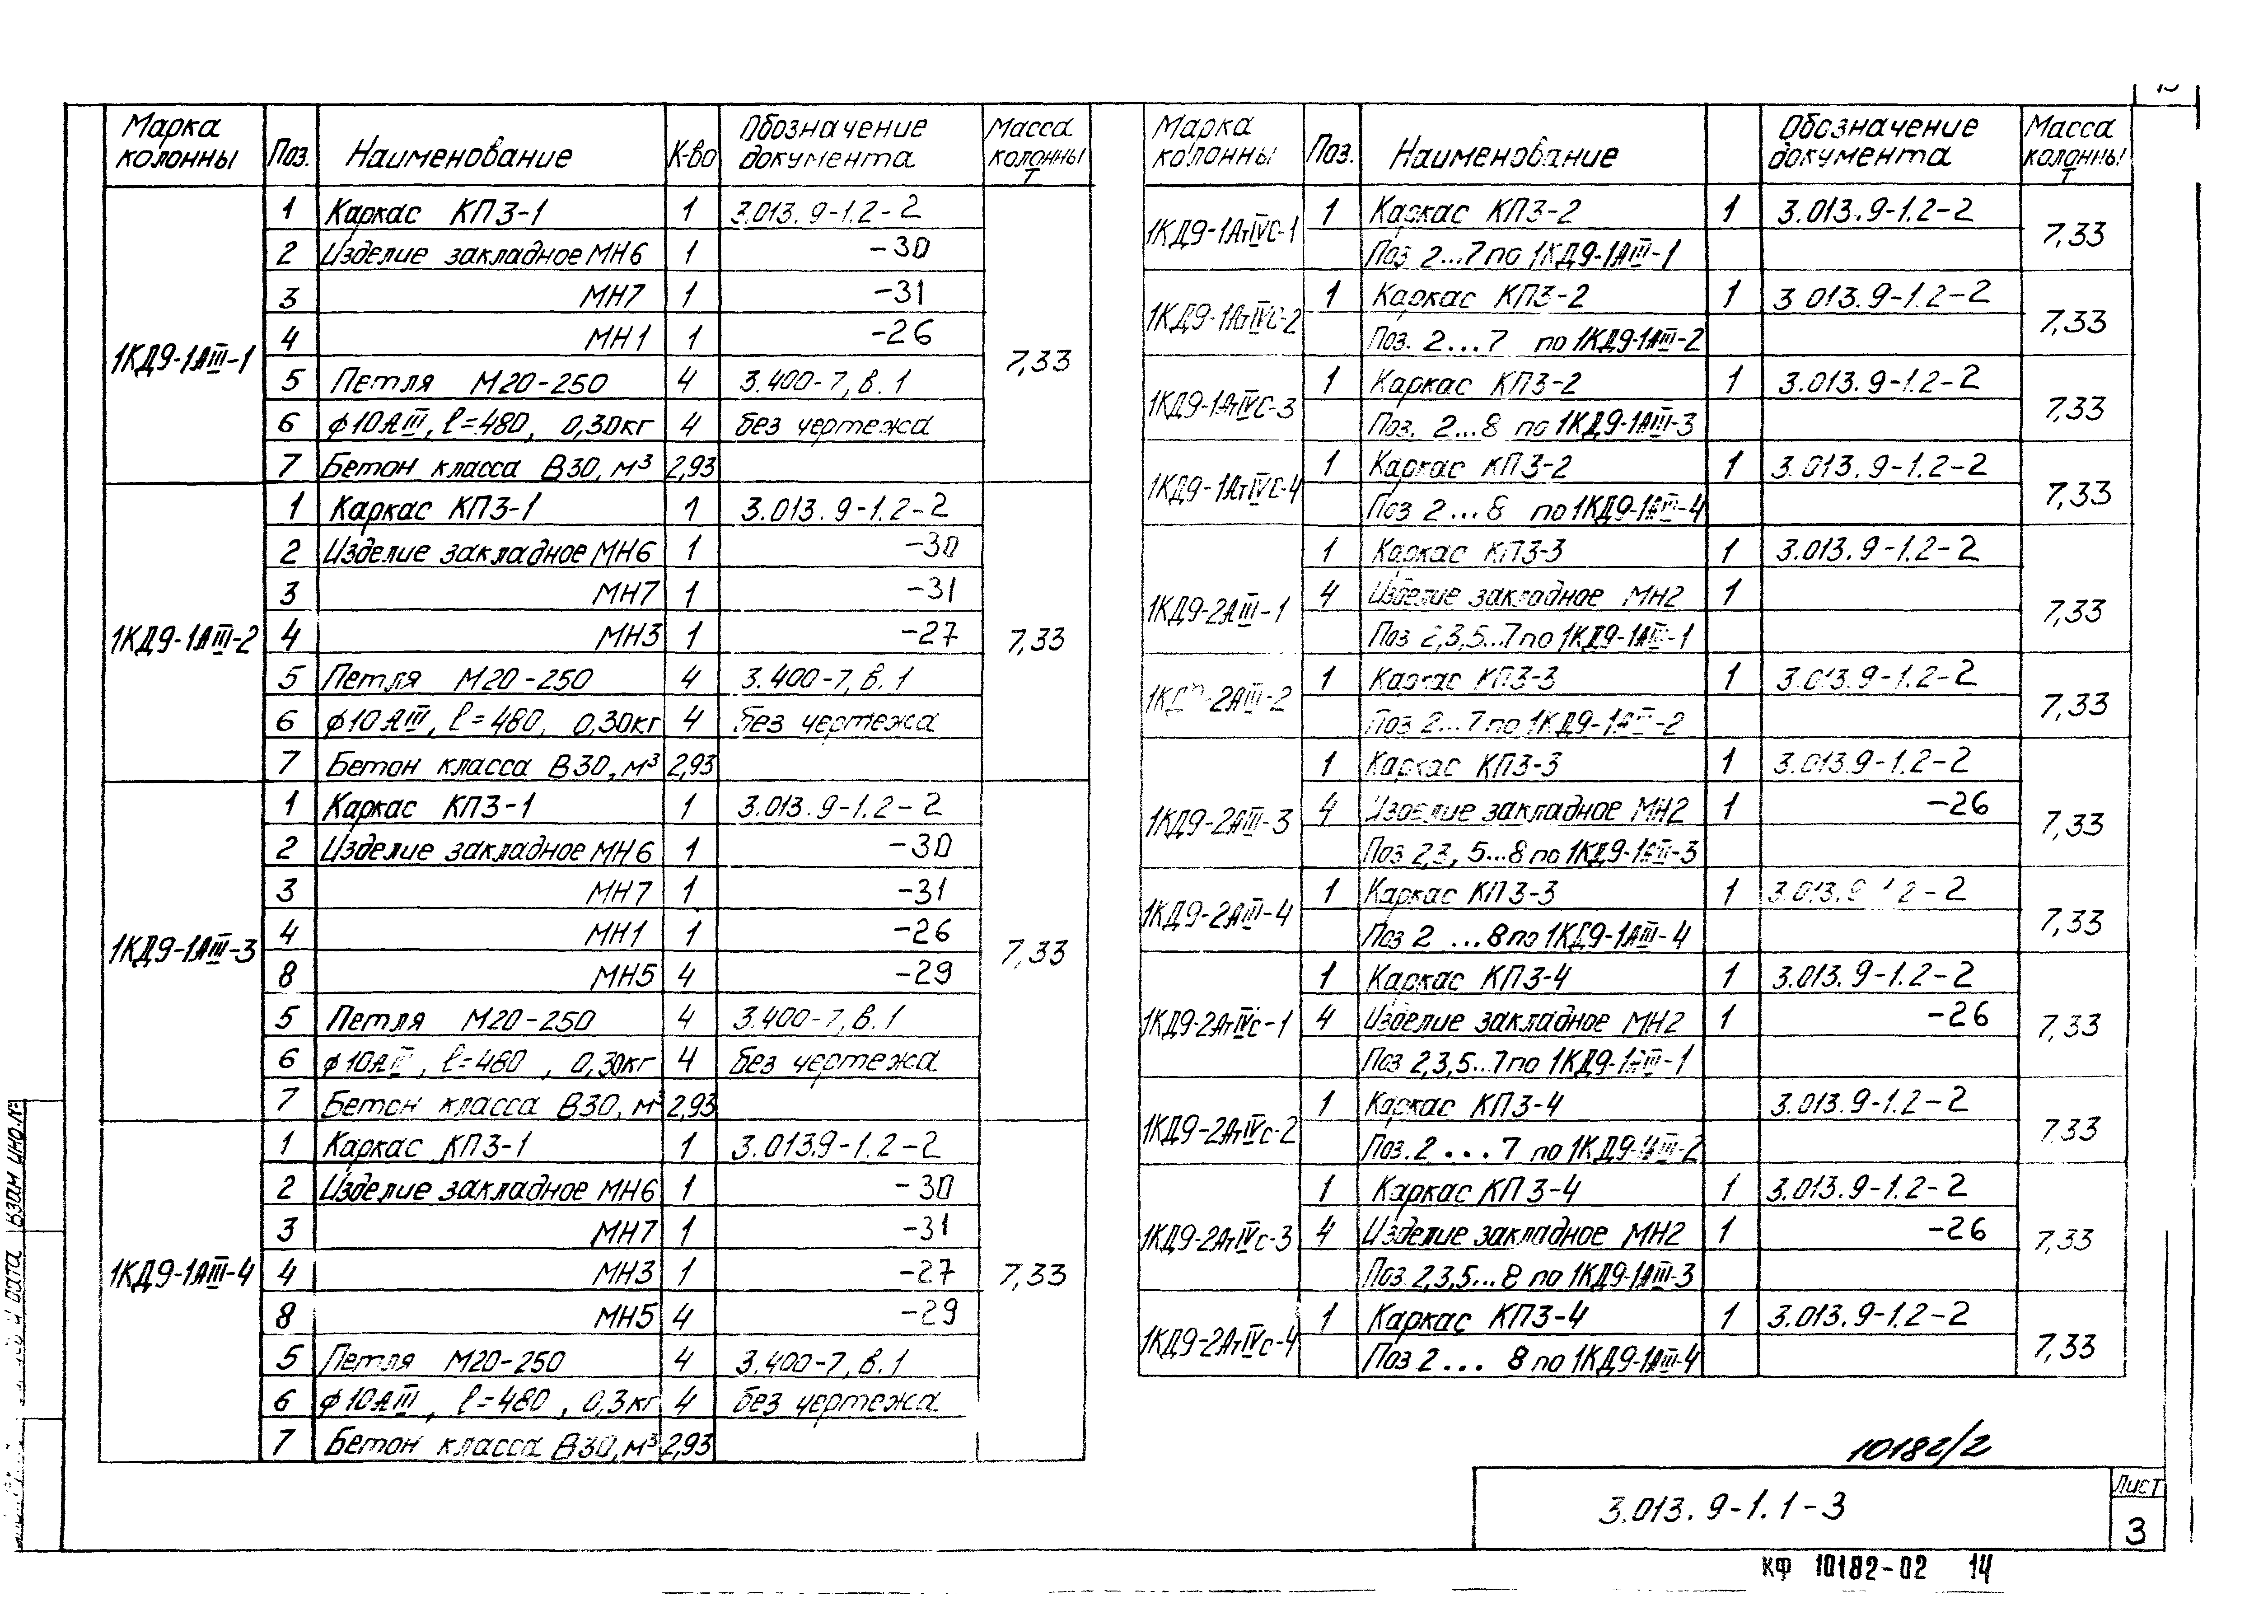 Марка колонны Поз. Наименование К-во Обозначение документа Масса колонны Т
1КД9-1АIII-1 7,33
1 Каркас КП3-1 1 3.013.9-1.2-2
2 Изделие закладное МН6 1 -30
3 МН7 1 -31
4 МН1 1 -26
5 Петля М20-250 4 3.400-7, в.1
6 ϕ10АIII, ℓ=480, 0,30кг 4 без чертежа
7 Бетон класса В30, м³ 2,93
1КД9-1АIII-2 7,33
1 Каркас КП3-1 1 3.013.9-1.2-2
2 Изделие закладное МН6 1 -30
3 МН7 1 -31
4 МН3 1 -27
5 Петля М20-250 4 3.400-7, в.1
6 ϕ10АIII, ℓ=480, 0,30кг 4 без чертежа
7 Бетон класса В30, м³ 2,93
1КД9-1АIII-3 7,33
1 Каркас КП3-1 1 3.013.9-1.2-2
2 Изделие закладное МН6 1 -30
3 МН7 1 -31
4 МН1 1 -26
8 МН5 4 -29
5 Петля М20-250 4 3.400-7, в.1
6 ϕ10АIII, ℓ=480, 0,30кг 4 без чертежа
7 Бетон класса В30, м³ 2,93
1КД9-1АIII-4 7,33
1 Каркас КП3-1 1 3.013.9-1.2-2
2 Изделие закладное МН6 1 -30
3 МН7 1 -31
4 МН3 1 -27
8 МН5 4 -29
5 Петля М20-250 4 3.400-7, в.1
6 ϕ10АIII, ℓ=480, 0,3кг 4 без чертежа
7 Бетон класса В30, м³ 2,93
Марка колонны Поз. Наименование Обозначение документа Масса колонны Т
1КД9-1АтIVС-1 7,33
1 Каркас КП3-2 1 3.013.9-1.2-2
Поз 2...7 по 1КД9-1АIII-1
1КД9-1АтIVС-2 7,33
1 Каркас КП3-2 1 3 013.9-1.2-2
Поз. 2...7 по 1КД9-1АIII-2
1КД9-1АтIVС-3 7,33
1 Каркас КП3-2 1 3.013.9-1.2-2
Поз. 2...8 по 1КД9-1АIII-3
1КД9-1АтIVС-4 7,33
1 Каркас КП3-2 1 3.013.9-1.2-2
Поз 2...8 по 1КД9-1АIII-4
1КД9-2АIII-1 7,33
1 Каркас КП3-3 1 3.013.9-1.2-2
4 Изделие закладное МН2 1
Поз 2,3,5...7 по 1КД9-1АIII-1
1КД9-2АIII-2 7,33
1 Каркас КП3-3 1 3.013.9-1.2-2
Поз 2...7 по 1КД9-1АIII-2
1КД9-2АIII-3 7,33
1 Каркас КП3-3 1 3.013.9-1.2-2
4 Изделие закладное МН2 1 -26
Поз 2,3, 5...8 по 1КД9-1АIII-3
1КД9-2АIII-4 7,33
1 Каркас КП3-3 1 3.013.9-1.2-2
Поз 2 ...8 по 1КД9-1АIII-4
1КД9-2АтIVс-1 7,33
1 Каркас КП3-4 1 3.013.9-1.2-2
4 Изделие закладное МН2 1 -26
Поз 2,3,5...7 по 1КД9-1АIII-1
1КД9-2АтIVс-2 7.33
1 Каркас КП3-4 3.013.9-1.2-2
Поз.2 ... 7 по 1КД9-1АIII-2
1КД9-2АтIVс-3 7,33
1 Каркас КП3-4 1 3.013.9-1.2-2
4 Изделие закладное МН2 1 -26
Поз.2,3,5...8 по 1КД9-1АIII-3
1КД9-2АтIVс-4 7,33
1 Каркас КП3-4 1 3.013.9-1.2-2
Поз 2... 8 по 1КД9-1АIII-4
10182/2
3.013.9-1.1-3
Лист
3
КФ 10182-02 14
Взам инв.№
и дата